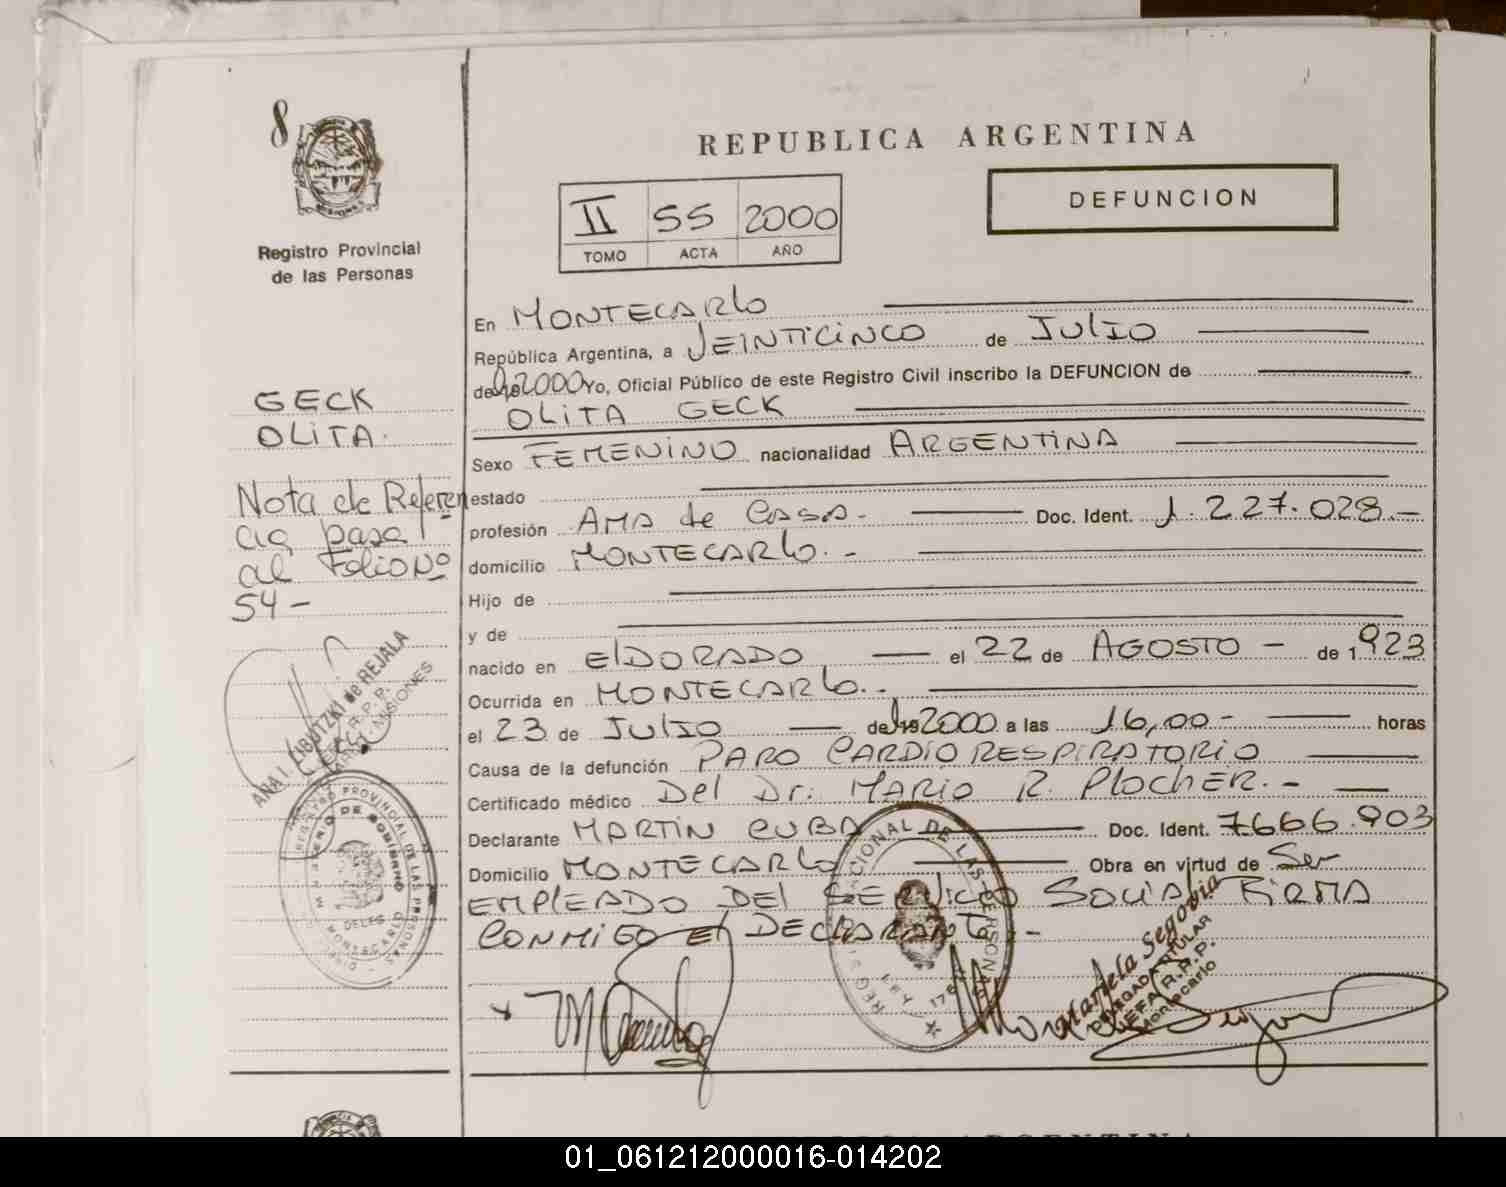 8
Registro Provincial
de las Personas
GECK
OLITA.
Nota de Referen
cia pasa
al Folio Nº
54 -
ANA I. de REJALA
REPUBLICA ARGENTINA
DEFUNCION
II 55 2000
TOMO ACTA AÑO
En MONTECARlo
República Argentina, a VEINTICINCO de JUlIO
de 2000 Yo, Oficial Público de este Registro Civil inscribo la DEFUNCION de
OLITA GECK
Sexo FEMENINO nacionalidad ARGENTINA
estado
profesión AMA de CASA.- Doc. Ident. 1.227.028.-
domicilio MONTECARlo.-
Hijo de
y de
nacido en ElDORADO el 22 de AGOSTO - de 1923
Ocurrida en MONTECARlo..
el 23 de JUlIO de 2000 a las 16,00- horas
Causa de la defunción PARO CARDIO RESPIRATORIO
Certificado médico Del Dr. MARIO R. PlOCHER.-
Declarante MARTIN CUBA Doc. Ident. 7666.903
Domicilio MONTECARLO Obra en virtud de Ser
EMPlEADO DEl SERVICIO SOCIAl FIRMA
CONMIGO El DECLARANTE -
Mariela Segovia
DELEGADA TITULAR
JEFA R.P.P.
Montecarlo
01_061212000016-014202